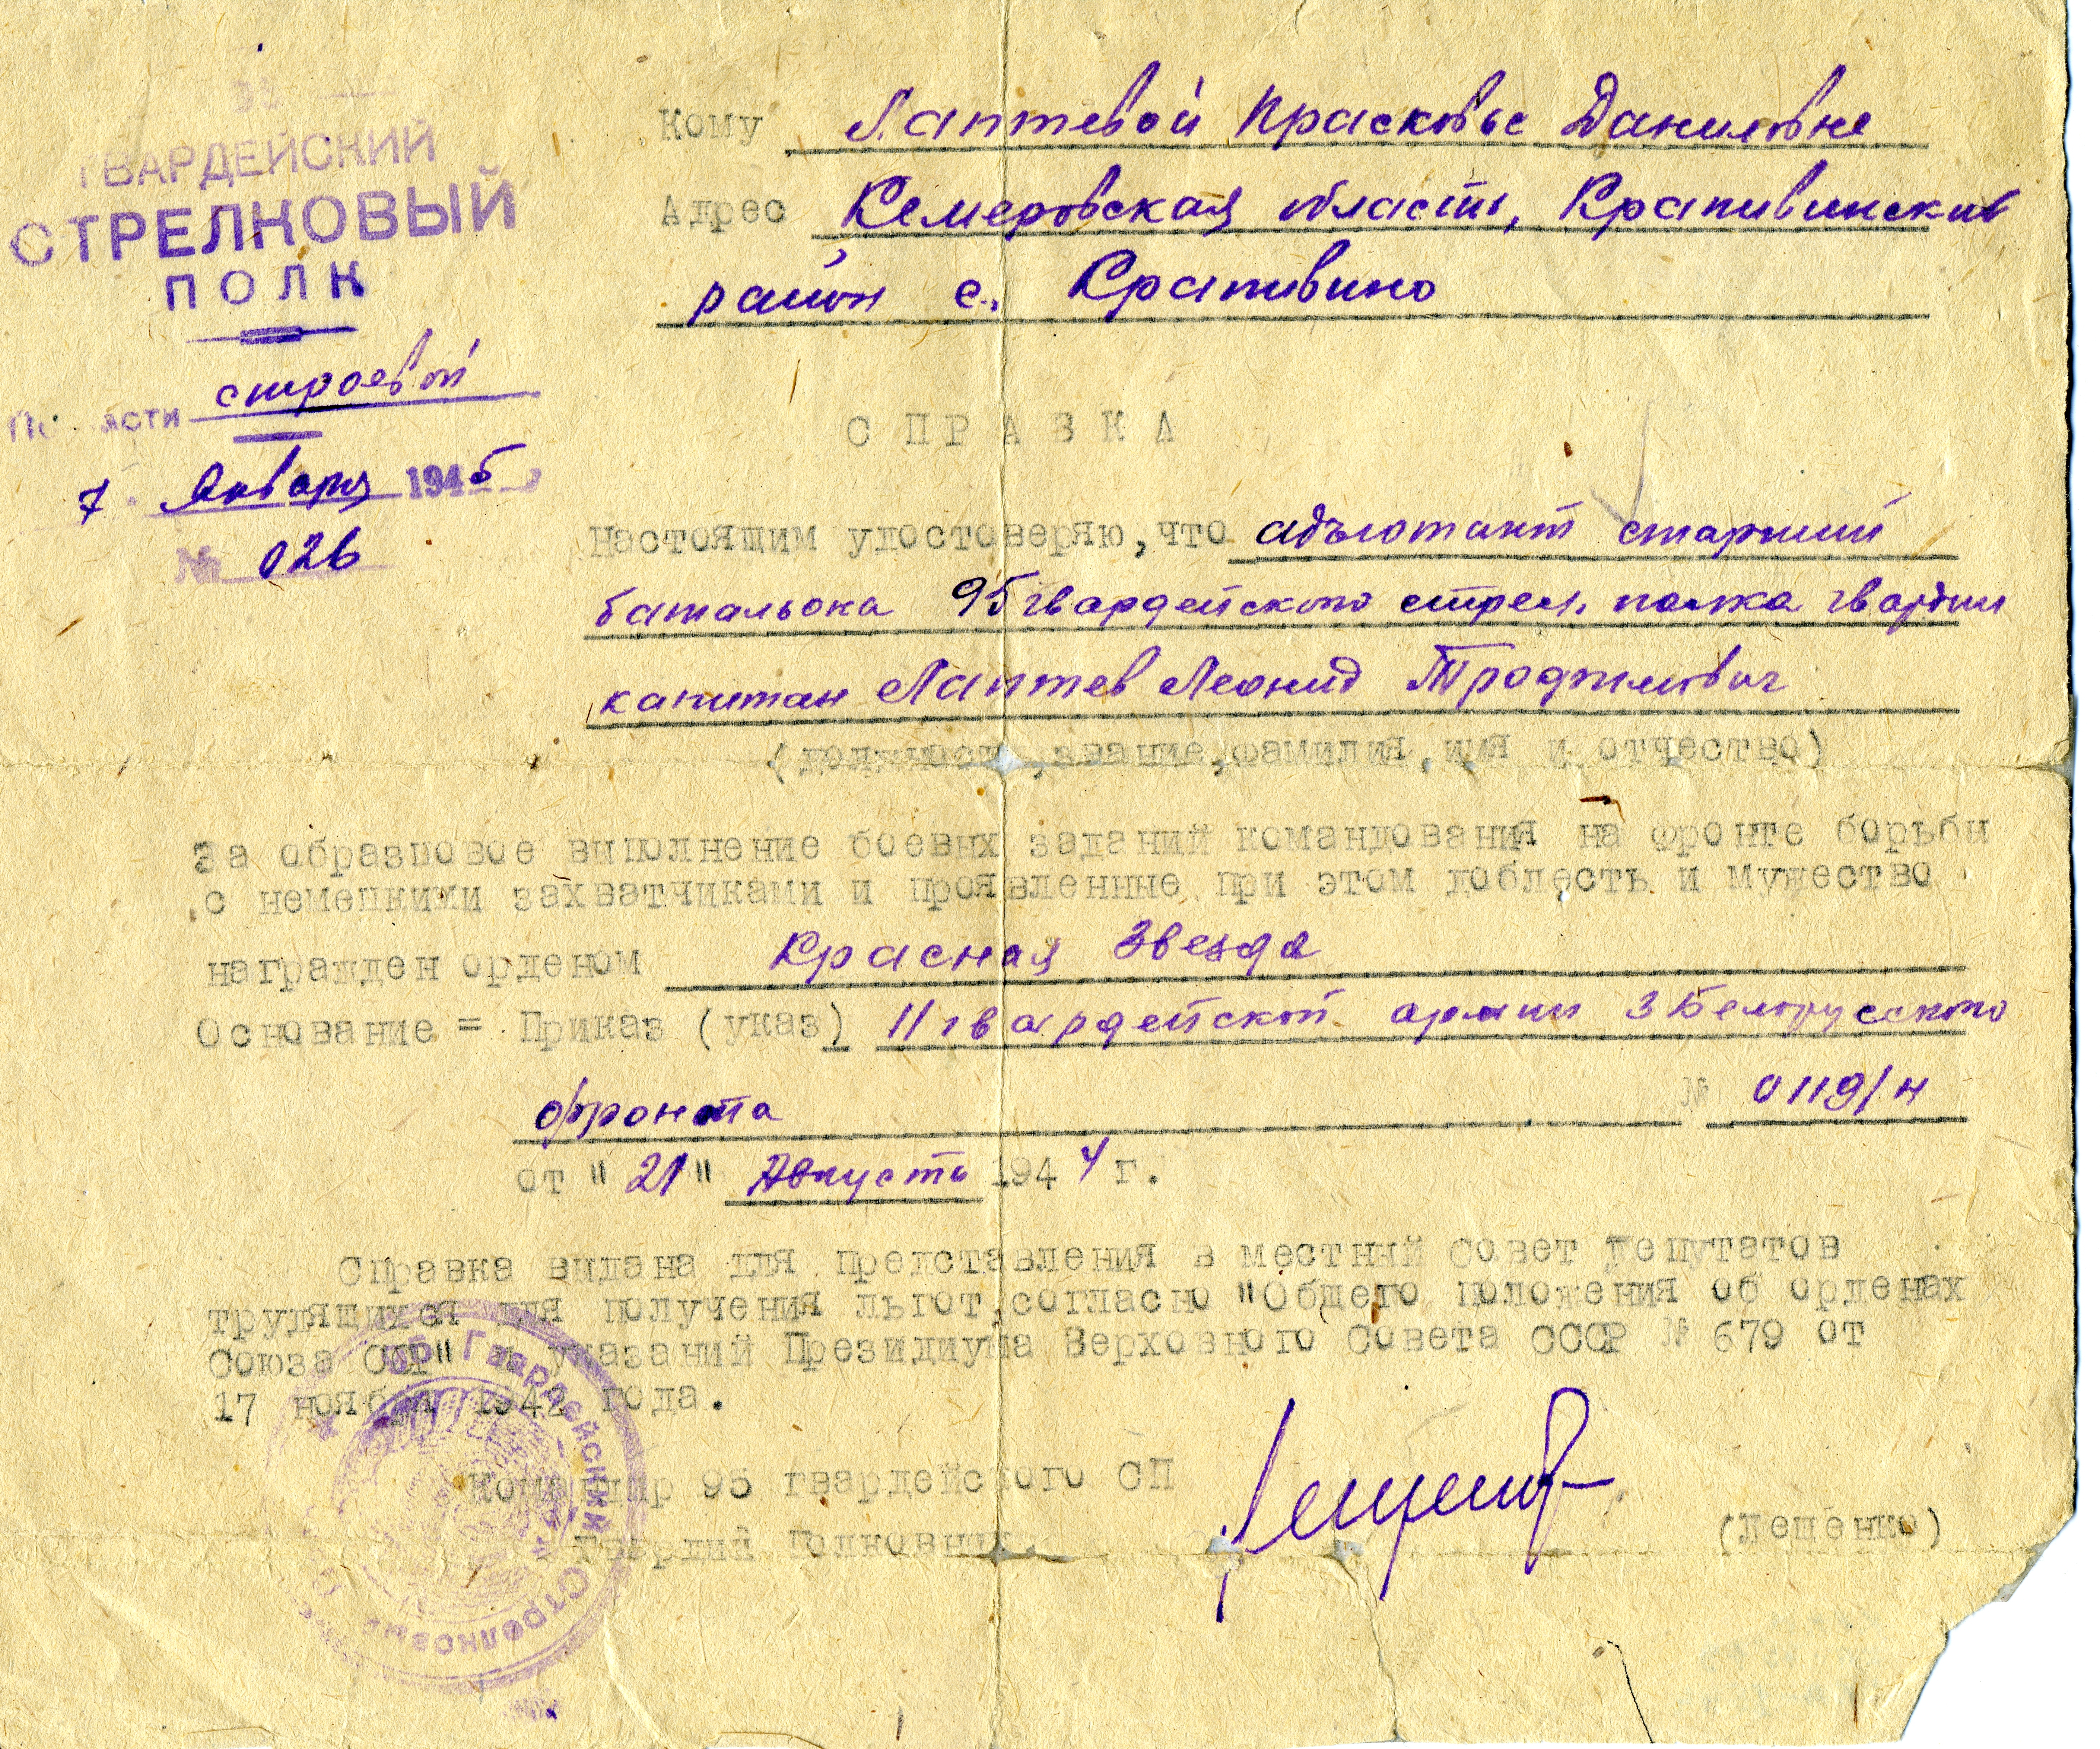 95
ГВАРДЕЙСКИЙ
СТРЕЛКОВЫЙ
ПОЛК
По части строевой
7 Января 1945
№ 026
Кому Лаптевой Прасковье Даниловне
Адрес Кемеровская область, Крапивинский
район с. Крапивино
СПРАВКА
Настоящим удостоверяю, что адъютант старший
батальона 95 гвардейского стрел. полка гвардии
капитан Лаптев Леонид Трофимович
(должность, звание, фамилия, имя и отчество)
За образцовое выполнение боевых заданий командования на фронте борьбы
с немецкими захватчиками и проявленные при этом доблесть и мужество
награжден орденом Красная Звезда
Основание = Приказ (указ) 11 гвардейской армии 3 Белорусского
фронта № 0119/н
от "21" Августа 1944 г.
Справка выдана для представления в местный Совет депутатов
трудящихся для получения льгот, согласно "Общего положения об орденах
Союза ССР" и указаний Президиума Верховного Совета СССР № 679 от
17 ноября 1942 года.
Командир 95 гвардейского СП
гвардии полковник
(Лещенко)
95 Гвардейский Стрелковый